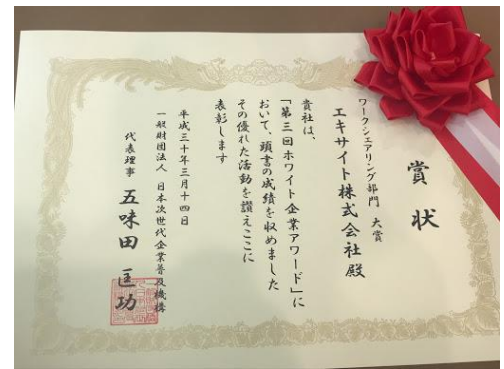 賞状
ワークシェアリング部門 大賞
エキサイト株式会社殿
貴社は、
「第三回ホワイト企業アワード」に
おいて、頭書の成績を収めました
その優れた活動を讃えここに
表彰します
平成三十年三月十四日
一般財団法人 日本次世代企業普及機構
代表理事 五味田 匡功